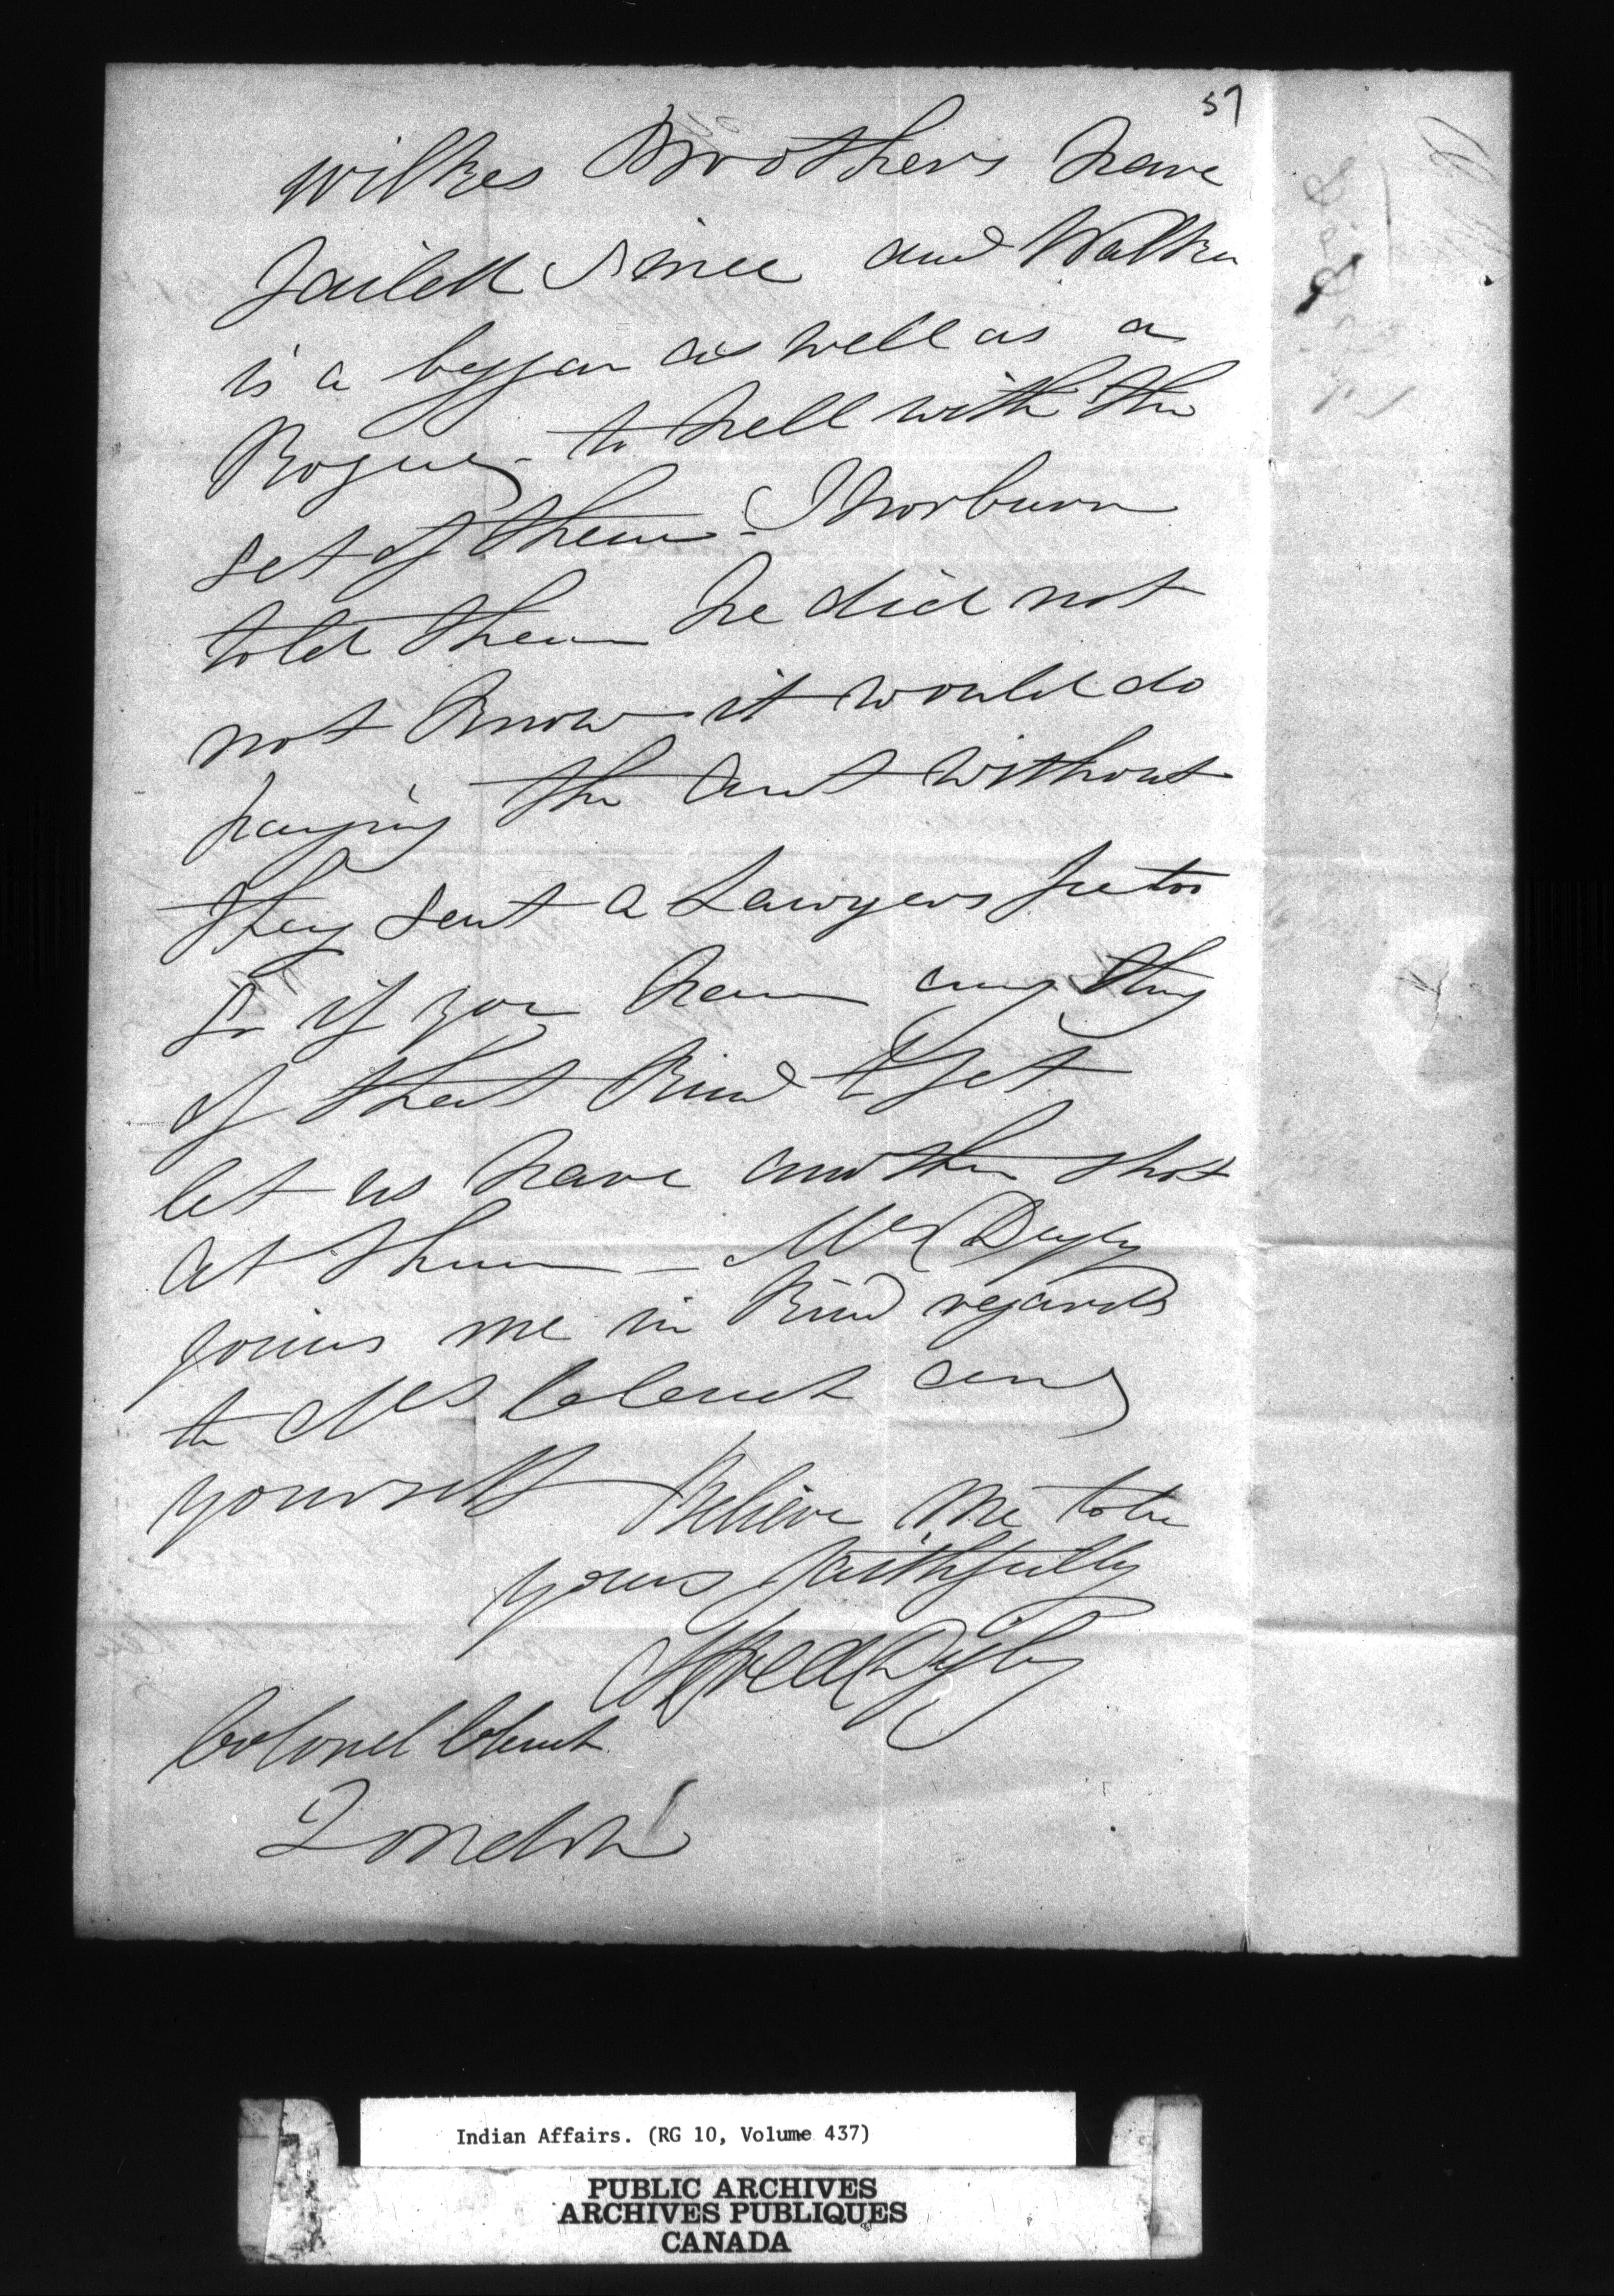 57
Wilkes Brothers have
failed Since and Walker
is a beggar as well as a
Rogue - to hell with the
set of them - Thorburn
told them he did not
not Know it would do
paying the amt without
they sent a Lawyers
So if you have any thing
of that Kind to get
let us have another shot
at them - Mrs Digby
joins me in Kind regards
to Mrs Clench and
yourself Believe me to be
yours faithfully
Alfred Digby
Colonel Clench
London
Indian Affairs. (RG 10, Volume 437)
PUBLIC ARCHIVES
ARCHIVES PUBLIQUES
CANADA